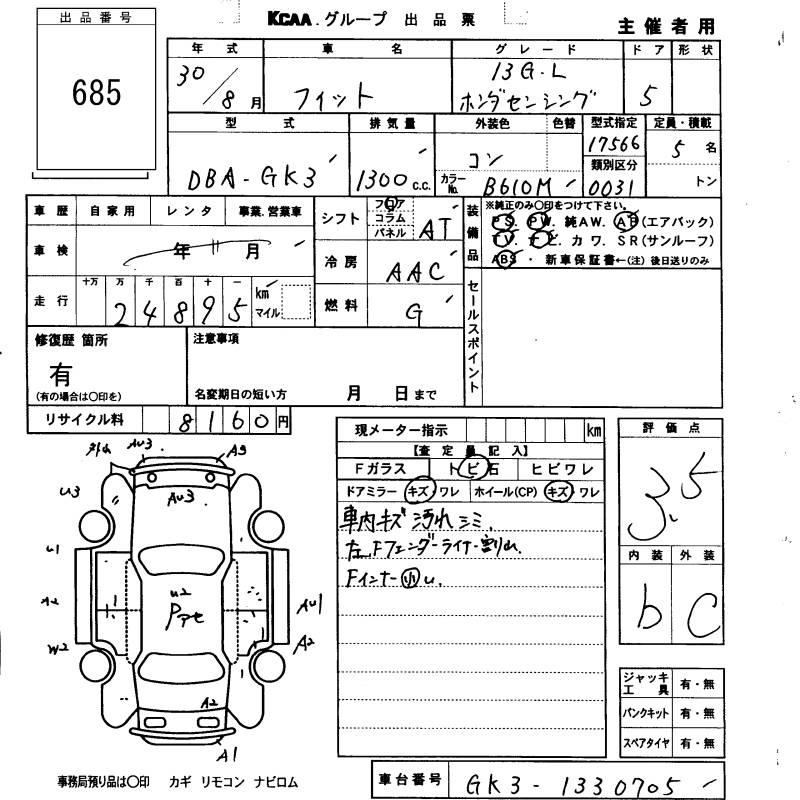 KCAA.グループ 出品票
主催者用
出品番号
685
年式 車名 グレード ドア 形状
30/8月 フィット 13G・L ホンダセンシング 5
型式 排気量 外装色 色替 型式指定 定員・積載
DBA-GK3 1300 c.c. コン 17566 5名
カラーNo. B610M 類別区分 0031 トン
車歴 自家用 レンタ 事業.営業車
シフト フロア コラム パネル AT
装備品 ※純正のみ〇印をつけて下さい。
PS. PW. 純AW. AB(エアバック)
TV. ナビ. カワ. SR(サンルーフ)
ABS ・ 新車保証書←(注) 後日送りのみ
車検 年 月
冷房 AAC
走行 十万 万 千 百 十 一
24895 km マイル
燃料 G
セールスポイント
修復歴 箇所
有
(有の場合は〇印を)
注意事項
名変期日の短い方 月 日まで
リサイクル料 8160円
現メーター指示 km
評価点
3.5
【査定員記入】
Fガラス トビ石 ヒビワレ
ドアミラー キズ ワレ ホイール(CP) キズ ワレ
車内キズ 汚れ シミ.
左Fフェンダーライナー割れ
Fインナー小U.
内装 外装
b C
AU3 A3
U3 AU3
U1
U2
A2 Pアセ AU1
W2 A2
A2
A1
ジャッキ工具 有・無
パンクキット 有・無
スペアタイヤ 有・無
事務局預り品は〇印 カギ リモコン ナビロム
車台番号 GK3-1330705